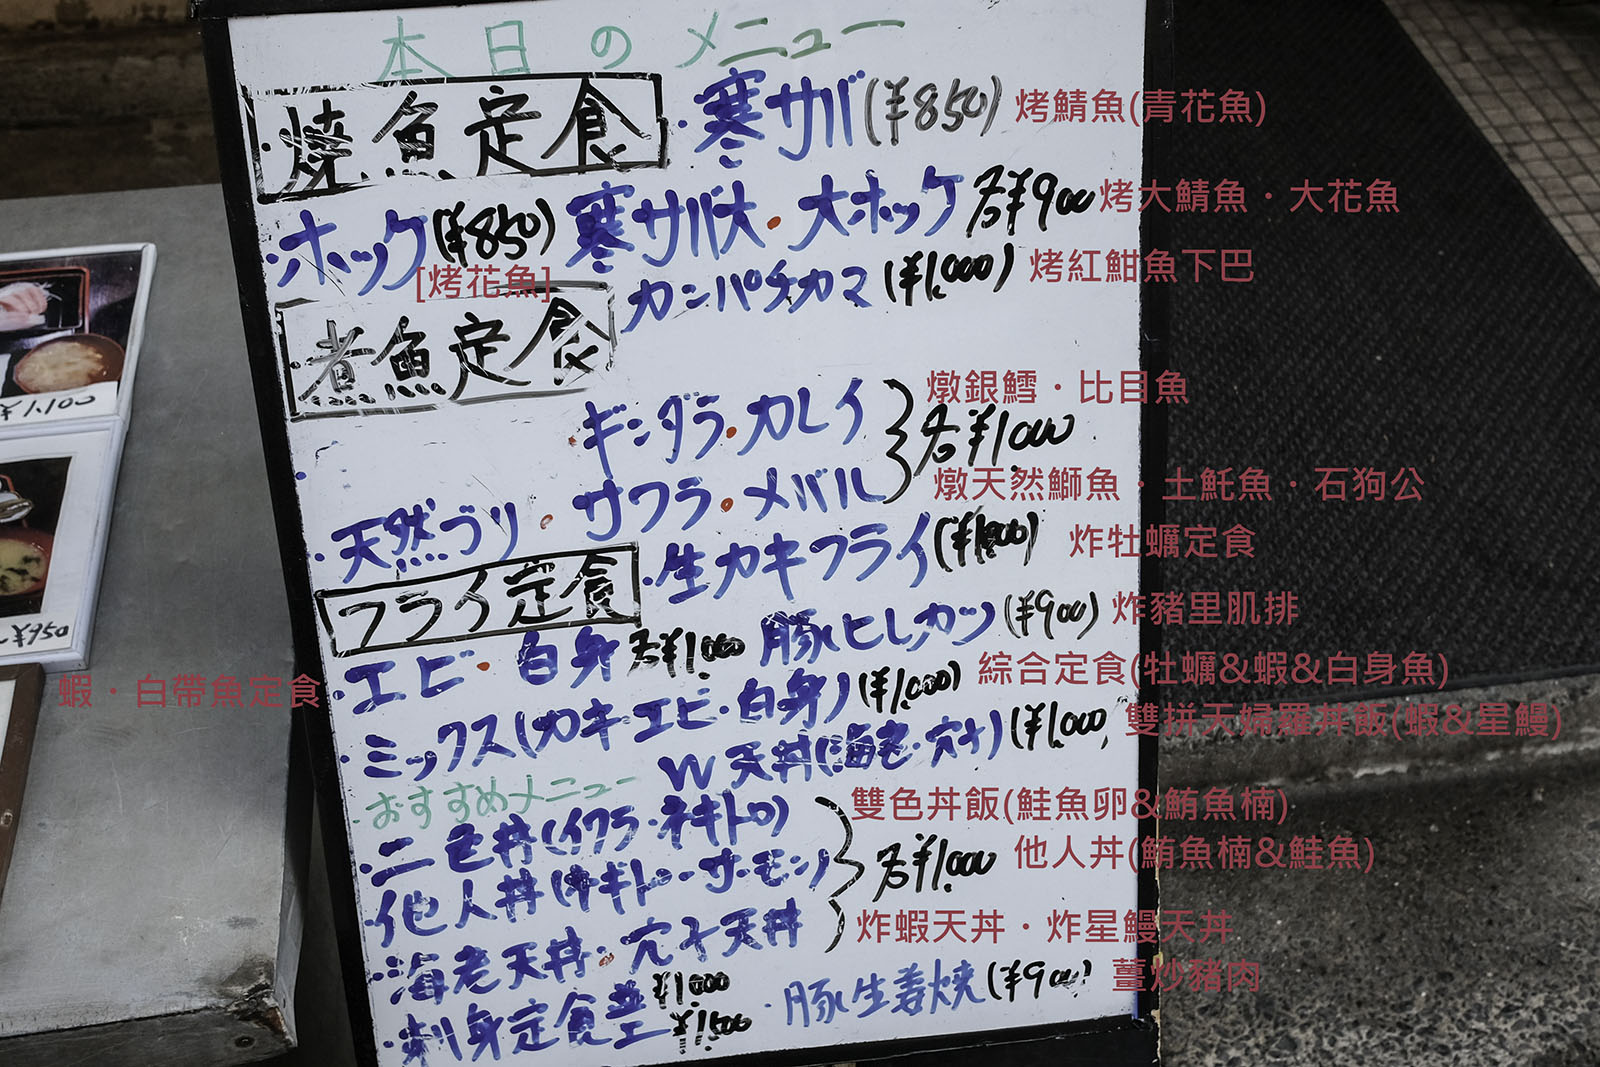 本日のメニュー
焼魚定食 ・寒サバ(¥850) 烤鯖魚(青花魚)
・ホッケ(¥850) 寒サバ大・大ホッケ 各¥900 烤大鯖魚・大花魚
[烤花魚]
カンパチカマ (¥1,000) 烤紅魽魚下巴
・煮魚定食
・ギンダラ・カレイ 燉銀鱈・比目魚
各¥1000
・天然ブリ・サワラ・メバル 燉天然鰤魚・土魠魚・石狗公
フライ定食 ・生カキフライ(¥1,000) 炸牡蠣定食
・エビ・白身 各¥1,000 豚ヒレカツ (¥900) 炸豬里肌排
蝦・白帶魚定食
・ミックス(カキエビ・白身)(¥1,000) 綜合定食(牡蠣&蝦&白身魚)
W天丼(海老・穴子)(¥1,000) 雙拼天婦羅丼飯(蝦&星鰻)
おすすめメニュー
・二色丼(イクラ・ネギトロ) 雙色丼飯(鮭魚卵&鮪魚楠)
・他人丼(ネギトロ・サーモン) 各¥1,000 他人丼(鮪魚楠&鮭魚)
・海老天丼・穴子天丼 炸蝦天丼・炸星鰻天丼
・刺身定食 並¥1000 上¥1,500 ・豚生姜焼(¥900) 薑炒豬肉
¥950